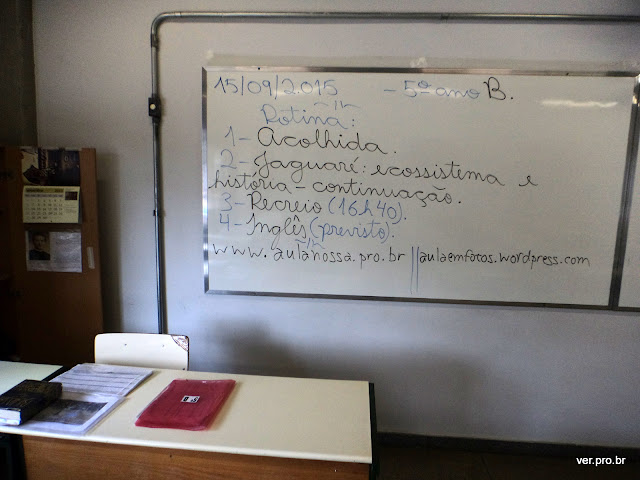 15/09/2015 - 5º ano B.
Rotina:
1- Acolhida.
2- Jaguaré: ecossistema e
história - continuação.
3- Recreio (16h40).
4- Inglês (previsto).
www.aulanossa.pro.br || aulaemfotos.wordpress.com
ver.pro.br